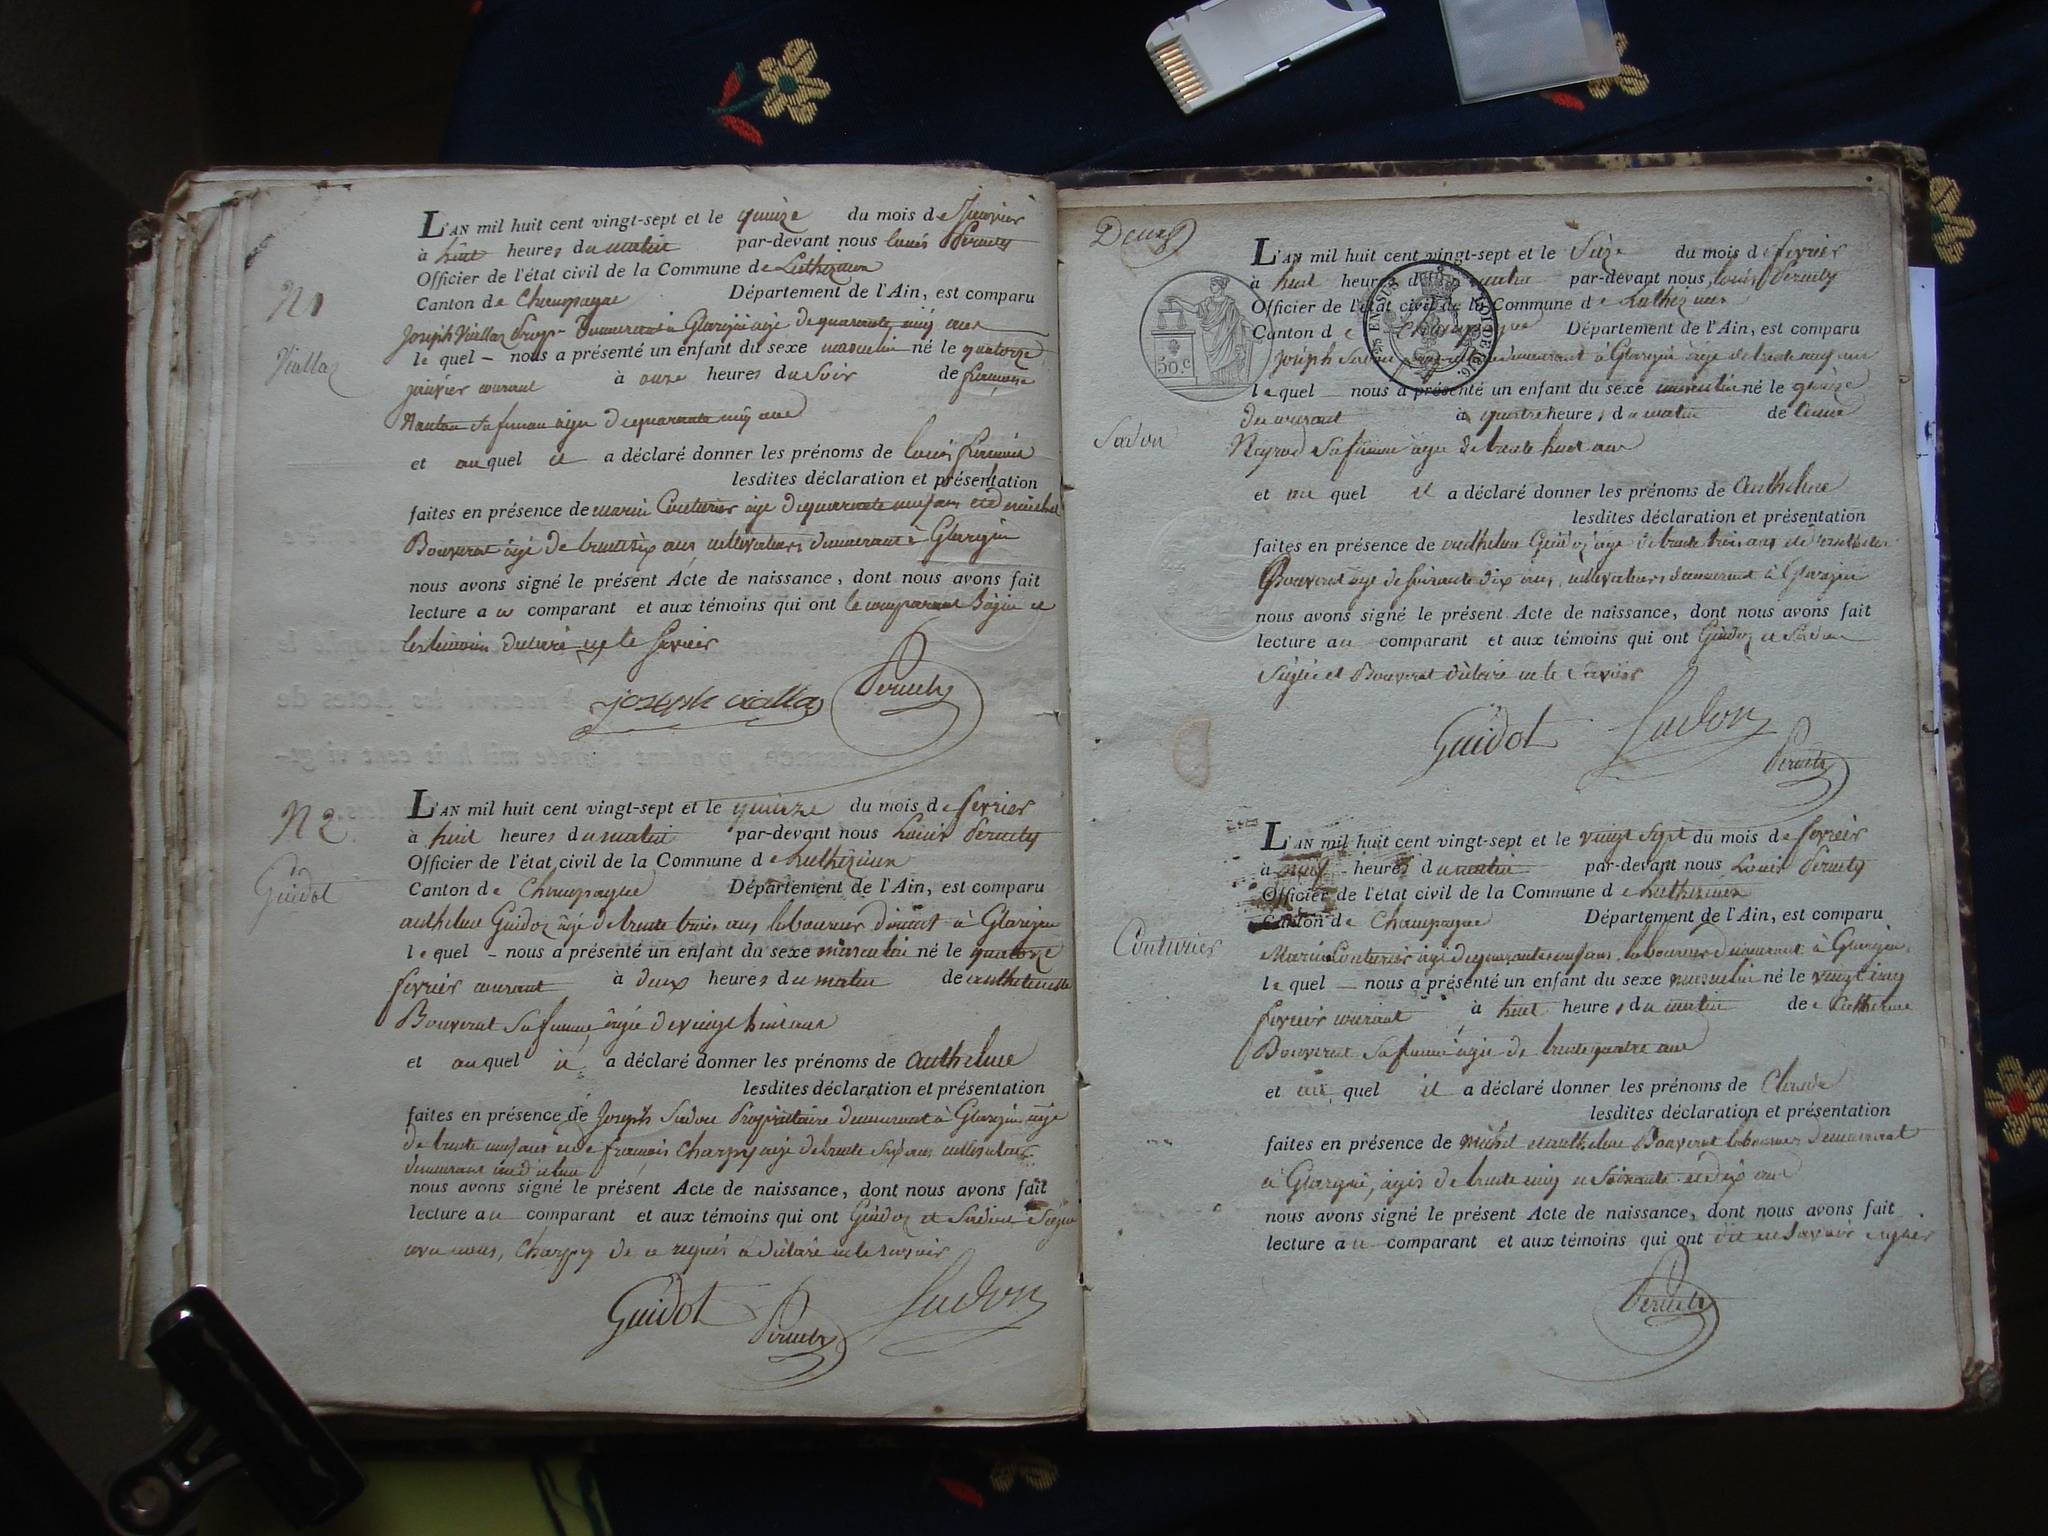 N 1
Viallaz
L'AN mil huit cent vingt-sept et le quinze du mois de Janvier
à huit heures du matin par-devant nous Louis Peruety
Officier de l'état civil de la Commune de Luthezieu
Canton de Champagne Département de l'Ain, est comparu
Joseph Viallaz demeurant à Glargin agé de quarante cinq ans
le quel nous a présenté un enfant du sexe masculin né le quatorze
janvier courant à onze heures du Soir de
sa femme agée de quarante cinq ans
et auquel il a déclaré donner les prénoms de Louis
lesdites déclaration et présentation
faites en présence de marin Couturier agé de quarante neuf ans et de michel
Bouverat agé de trente six ans cultivateurs demeurant à Glargin
nous avons signé le présent Acte de naissance, dont nous avons fait
lecture a ce comparant et aux témoins qui ont le comparant Signé et
les témoins declaré ne le savoir
joseph viallaz Peruety
N 2
Guidot
L'AN mil huit cent vingt-sept et le quinze du mois de fevrier
à huit heures du matin par-devant nous Louis Peruety
Officier de l'état civil de la Commune de Luthezieu
Canton de Champagne Département de l'Ain, est comparu
anthelme Guidoz âgé de trente trois ans laboureur à Glargin
le quel nous a présenté un enfant du sexe masculin né le quatorze
fevrier courant à deux heures du matin de
Bouverat sa femme, âgée de vingt huit ans
et au quel il a déclaré donner les prénoms de anthelme
lesdites déclaration et présentation
faites en présence de Joseph Sudon Propriétaire demeurant à Glargin agé
de trente neuf ans et de francois Charpy agé de trente Six ans cultivateur
demeurant
nous avons signé le présent Acte de naissance, dont nous avons fait
lecture au comparant et aux témoins qui ont Guidoz et Sudon Signé
avec nous, Charpy de ce requis a déclaré ne le savoir
Guidot Peruety Sudon
Deux
Sudon
50.c
L'AN mil huit cent vingt-sept et le Sèze du mois de fevrier
à huit heures du matin par-devant nous, Louis Peruety
Officier de l'état civil de la Commune de Luthezieu
Canton de Champagne Département de l'Ain, est comparu
Joseph Sudon demeurant à Glargin âgé de trente neuf ans
le quel nous a présenté un enfant du sexe masculin né le quinze
du courant à quatre heures du matin de
sa femme agée de trente huit ans
et au quel il a déclaré donner les prénoms de Anthelme
lesdites déclaration et présentation
faites en présence de anthelme Guidoz agé de trente trois ans et d'anthelme
Bouverat agé de soixante dix ans, cultivateurs demeurant à Glargin
nous avons signé le présent Acte de naissance, dont nous avons fait
lecture au comparant et aux témoins qui ont Guidoz et Sudon
Signé et Bouverat déclaré ne le savoir
Guidot Sudon
Peruety
Couturier
L'AN mil huit cent vingt-sept et le vingt Sept du mois de fevrier
à neuf heures du matin par-devant nous Louis Peruety
Officier de l'état civil de la Commune de Luthezieu
Canton de Champagne Département de l'Ain, est comparu
Marin Couturier agé de quarante neuf ans laboureur demeurant à Glargin
le quel nous a présenté un enfant du sexe masculin né le vingt cinq
fevrier courant à huit heures du matin de Catherine
Bouverat sa femme agée de trente quatre ans
et au quel il a déclaré donner les prénoms de Claude
lesdites déclaration et présentation
faites en présence de michel et anthelme Bouverat laboureurs demeurant
à Glargin, agés de trente cinq et soixante et dix ans
nous avons signé le présent Acte de naissance, dont nous avons fait
lecture au comparant et aux témoins qui ont dit ne savoir signer
Peruety